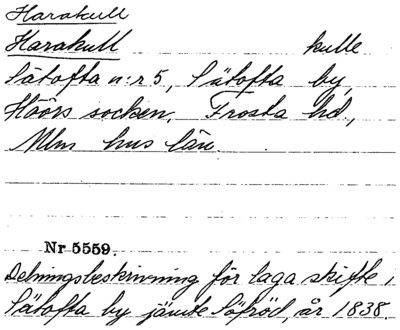 Harakull
Harakull kulle
Sätofta n:r 5, Sätofta by,
Höörs socken, Frosta hd,
Mlm hus län.
Nr 5559.
Delningsbeskrivning för laga skifte i
Sätofta by jämte Söfröd, år 1838.